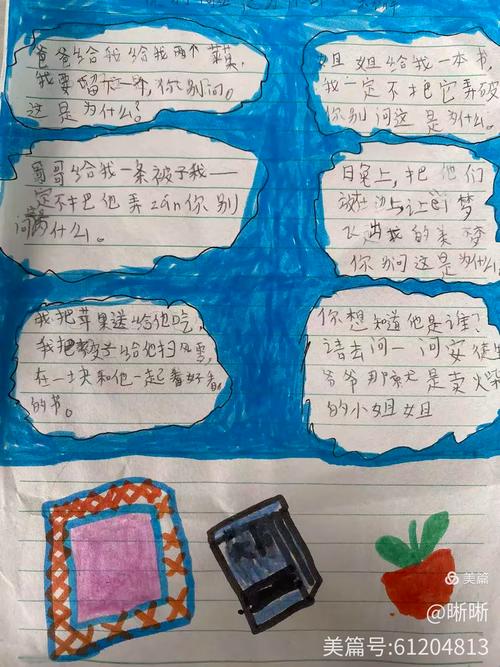 爸爸给我给我两个苹果,
我要留下一个,你别问。
这是为什么?
姐姐给我一本书,
我一定不把它弄破
你别问这是为什么。
哥哥给我一条被子我一
定不把他弄zān你别
问为什么。
白兔上,把他们
放在边上,让
梦
飞出我的美梦
你别问这是为什么
我把苹果送给他吃,
我把被子给他扫风雪,
在一块和他一起看好看
的书。
你想知道他是谁?
请去问一问安徒生
爷爷那就是卖火柴
的小姐姐
美篇
@晰晰
美篇号:61204813